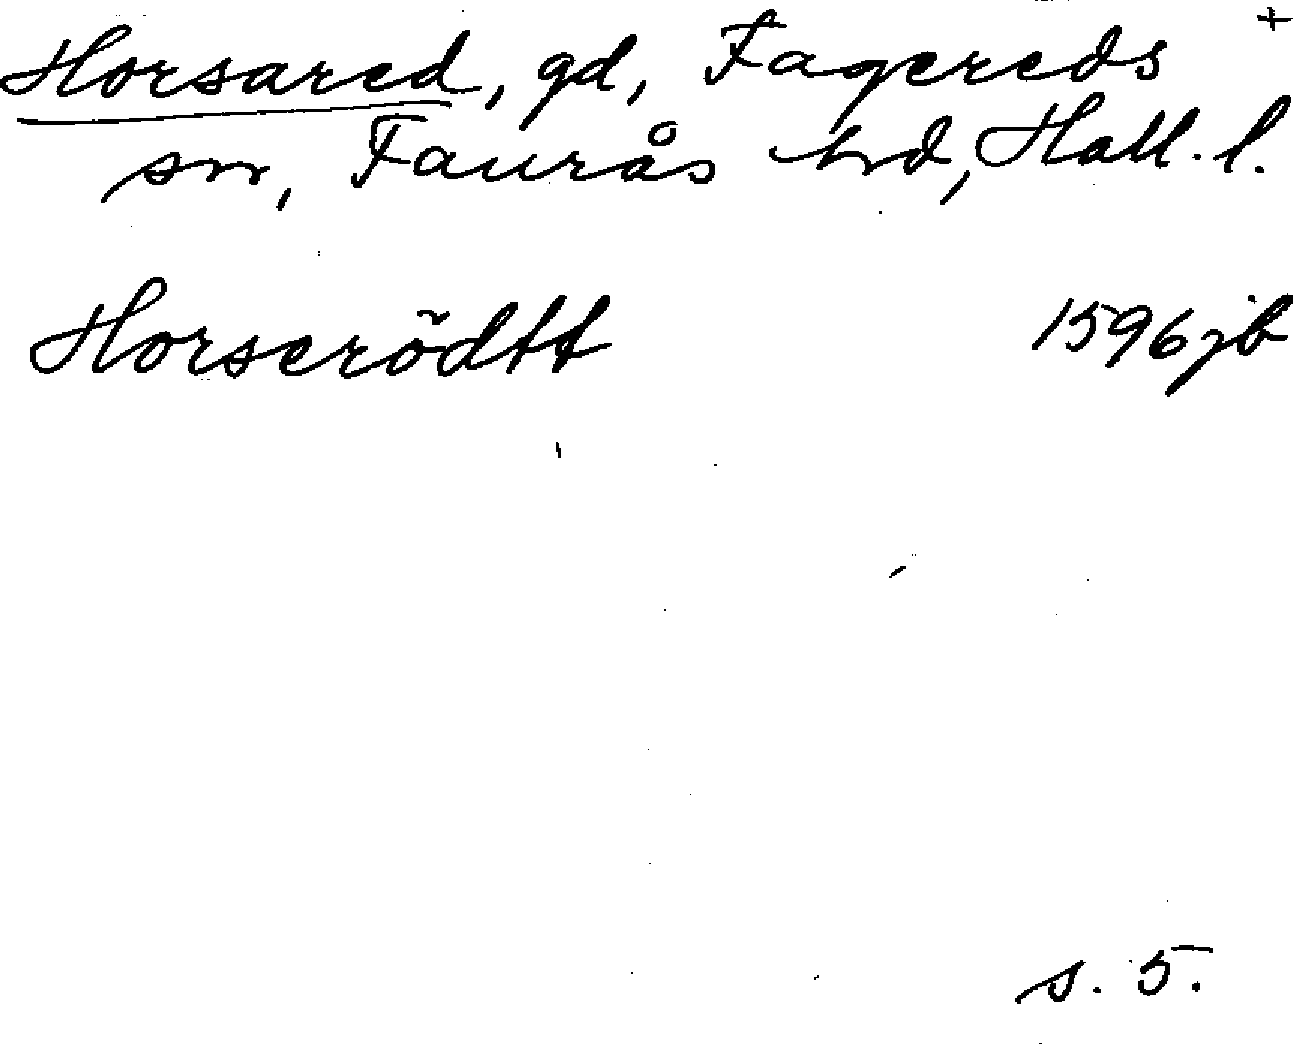 Horsared, gd, Fagereds +
sn, Faurås hd, Hall. l.
Horserödtt 1596 jb
s. 5.